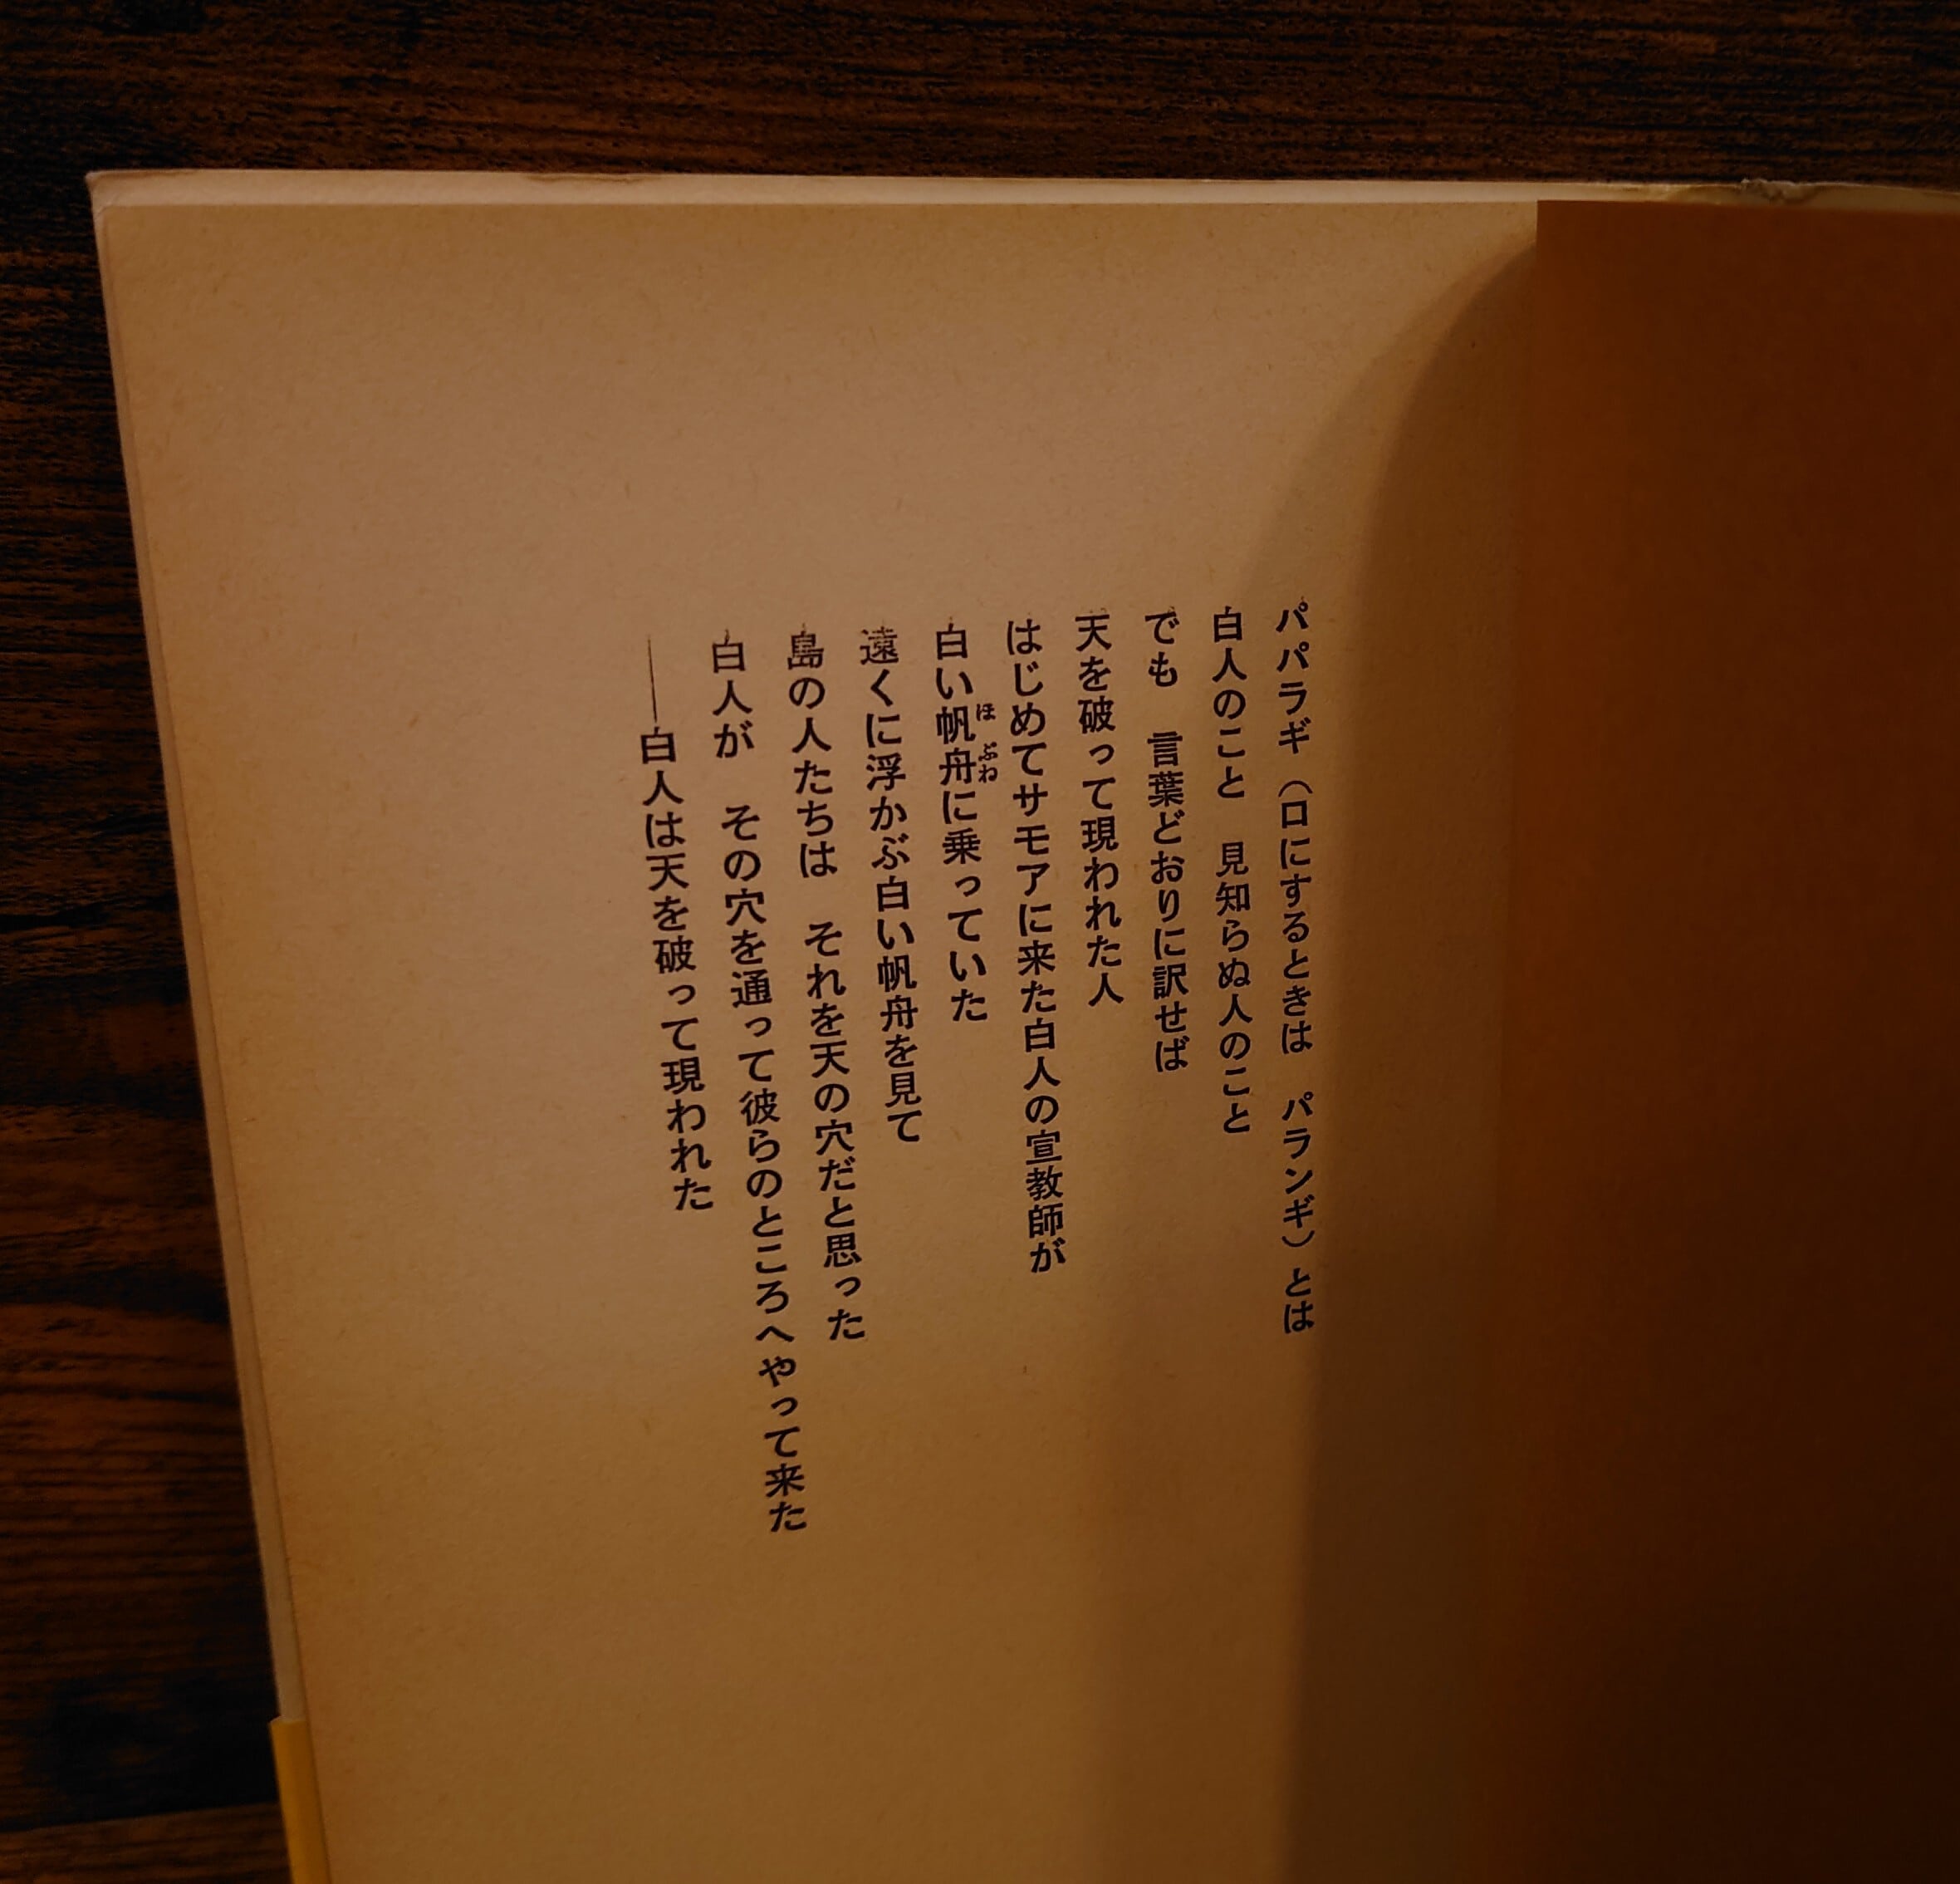 パパラギ（口にするときは　パランギ）とは
白人のこと　見知らぬ人のこと
でも　言葉どおりに訳せば
天を破って現われた人
はじめてサモアに来た白人の宣教師が
白い帆舟に乗っていた
ほ ぶね
遠くに浮かぶ白い帆舟を見て
島の人たちは　それを天の穴だと思った
白人が　その穴を通って彼らのところへやって来た
――白人は天を破って現われた